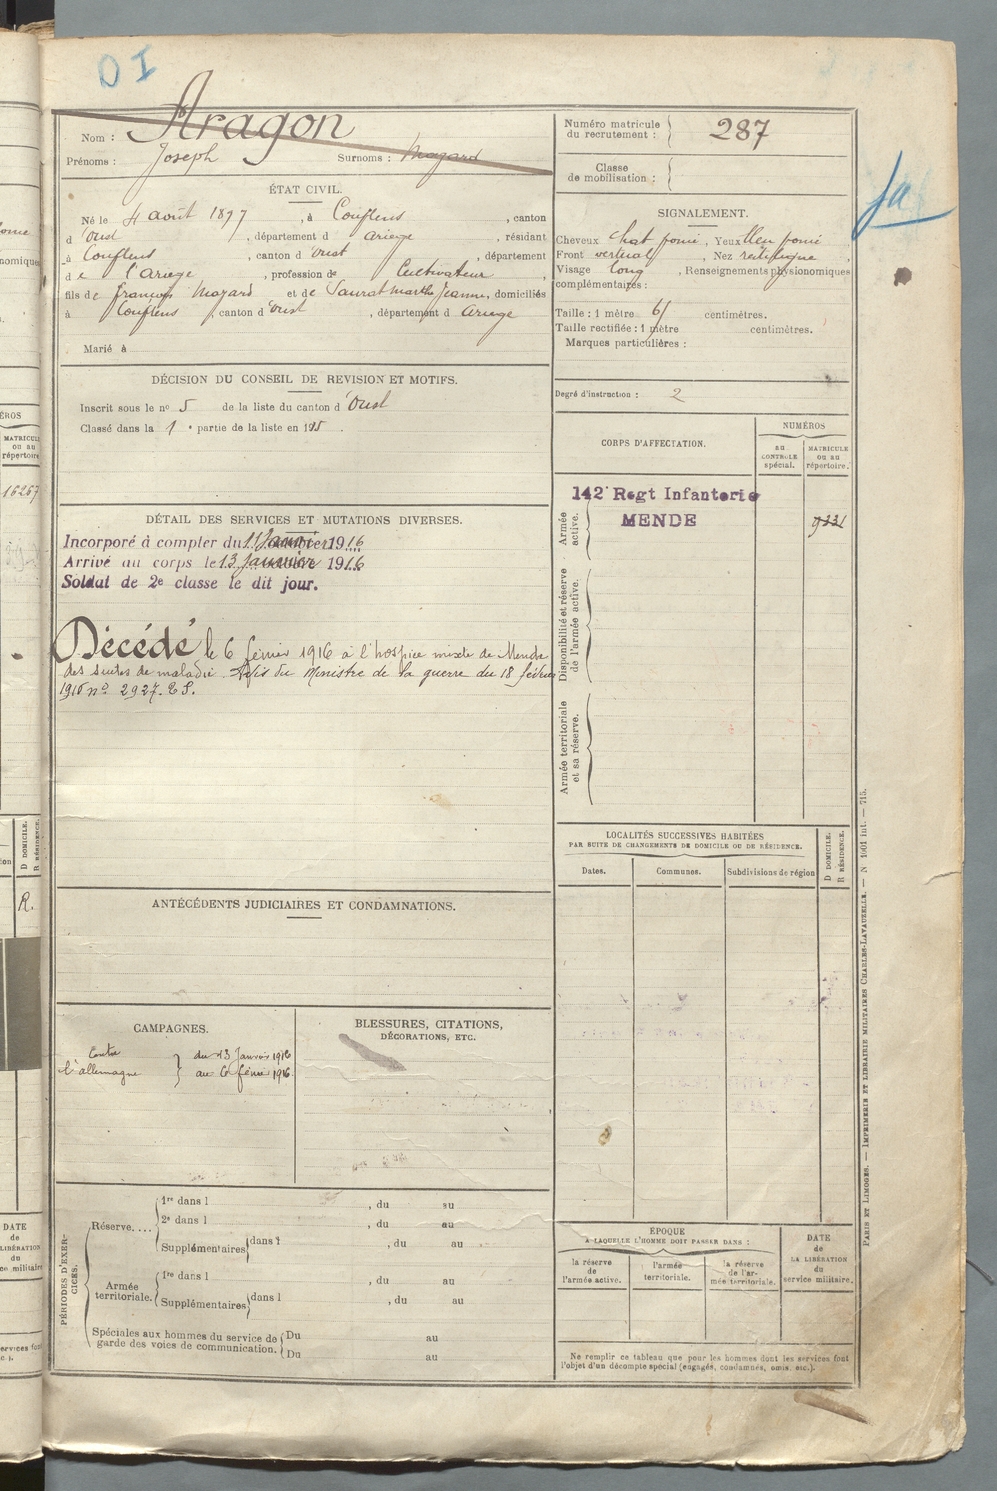 OI
Nom : Aragon
Prénoms : Joseph Surnoms : Mazard
Numéro matricule du recrutement : 287
Classe de mobilisation :
ÉTAT CIVIL.
Né le 4 août 1897, à Couflens, canton
d'Oust, département d Ariège, résidant
à Couflens, canton d'Oust, département
de l'Ariège, profession de Cultivateur
fils de françois Mazard et de Saurat Marthe Jeanne, domiciliés
à Couflens, canton d'Oust, département d Ariège
Marié à
SIGNALEMENT.
Cheveux chat foncé, Yeux bleu foncé
Front vertical, Nez rectiligne
Visage long, Renseignements physionomiques
complémentaires :
Taille : 1 mètre 61 centimètres.
Taille rectifiée : 1 mètre centimètres.
Marques particulières :
Degré d'instruction : 2
DÉCISION DU CONSEIL DE REVISION ET MOTIFS.
Inscrit sous le nº 5 de la liste du canton d'Oust
Classé dans la 1e partie de la liste en 195.
CORPS D'AFFECTATION.
NUMÉROS
AU CONTROLE spécial.
MATRICULE OU AU répertoire.
Armée active.
142e Regt Infanterie
MENDE
9331
Disponibilité et réserve de l'armée active.
Armée territoriale et sa réserve.
DÉTAIL DES SERVICES ET MUTATIONS DIVERSES.
Incorporé à compter du 11 Janvier 1916
Arrivé au corps le 13 Janvier 1916
Soldat de 2e classe le dit jour.
Décédé le 6 février 1916 à l'hospice mixte de Mende
des suites de maladie. Avis du Ministre de la guerre du 18 février
1916 nº 2927. E S.
LOCALITÉS SUCCESSIVES HABITÉES
PAR SUITE DE CHANGEMENTS DE DOMICILE OU DE RÉSIDENCE.
Dates. Communes. Subdivisions de région
D DOMICILE.
R RÉSIDENCE.
ANTÉCÉDENTS JUDICIAIRES ET CONDAMNATIONS.
CAMPAGNES.
Contre l'allemagne
du 13 Janvier 1916
au 6 février 1916
BLESSURES, CITATIONS,
DÉCORATIONS, ETC.
PÉRIODES D'EXERCICES.
Réserve.... 1re dans l , du au
2e dans l , du au
Supplémentaires dans l , du au
Armée territoriale. 1re dans l , du au
Supplémentaires dans l , du au
Spéciales aux hommes du service de Du au
garde des voies de communication. Du au
ÉPOQUE
A LAQUELLE L'HOMME DOIT PASSER DANS :
la réserve de l'armée active.
l'armée territoriale.
la réserve de l'armée territoriale.
DATE de LA LIBÉRATION du service militaire.
Ne remplir ce tableau que pour les hommes dont les services font
l'objet d'un décompte spécial (engagés, condamnés, omis, etc.).
PARIS ET LIMOGES. — IMPRIMERIE ET LIBRAIRIE MILITAIRES CHARLES-LAVAUZELLE. — N 1001 int. — 715.
ÉROS
MATRICULE
ou au
répertoire
16267
D DOMICILE.
R RÉSIDENCE.
R.
DATE
de
LIBÉRATION
du